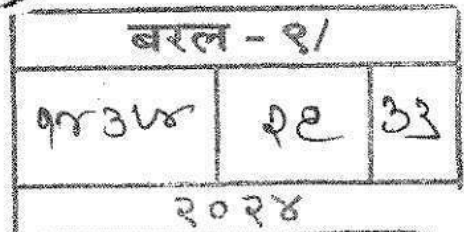 बरल - ९/
१४३५४ २९ ३३
२०२४